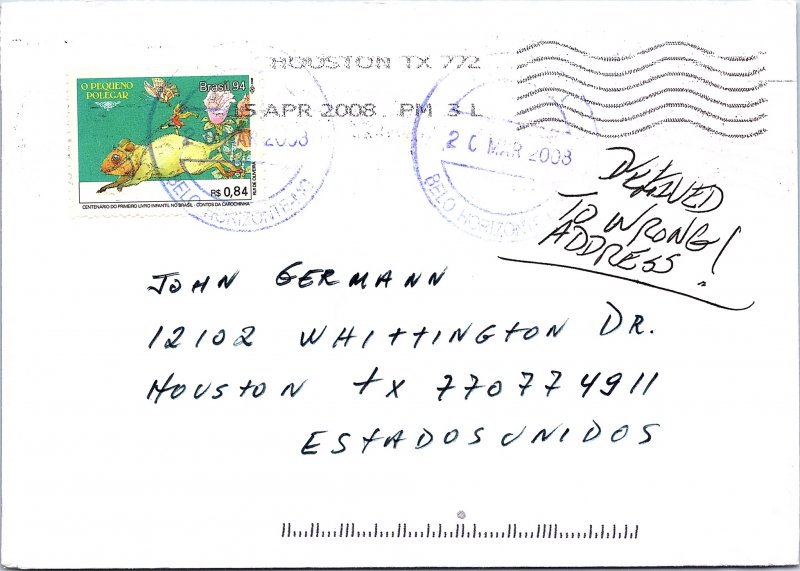 HOUSTON TX 772
15 APR 2008 PM 3 L
O PEQUENO
POLEGAR
Brasil 94
R$ 0,84
RUI DE OLIVEIRA
CENTENÁRIO DO PRIMEIRO LIVRO INFANTIL NO BRASIL - CONTOS DA CAROCHINHA
2008
BELO HORIZONTE-MG
20 MAR 2008
BELO HORIZONTE
TO WRONG!
ADDRESS.
JOHN GERMANN
12102 WHITTINGTON DR.
HOUSTON TX 770774911
ESTADOS UNIDOS